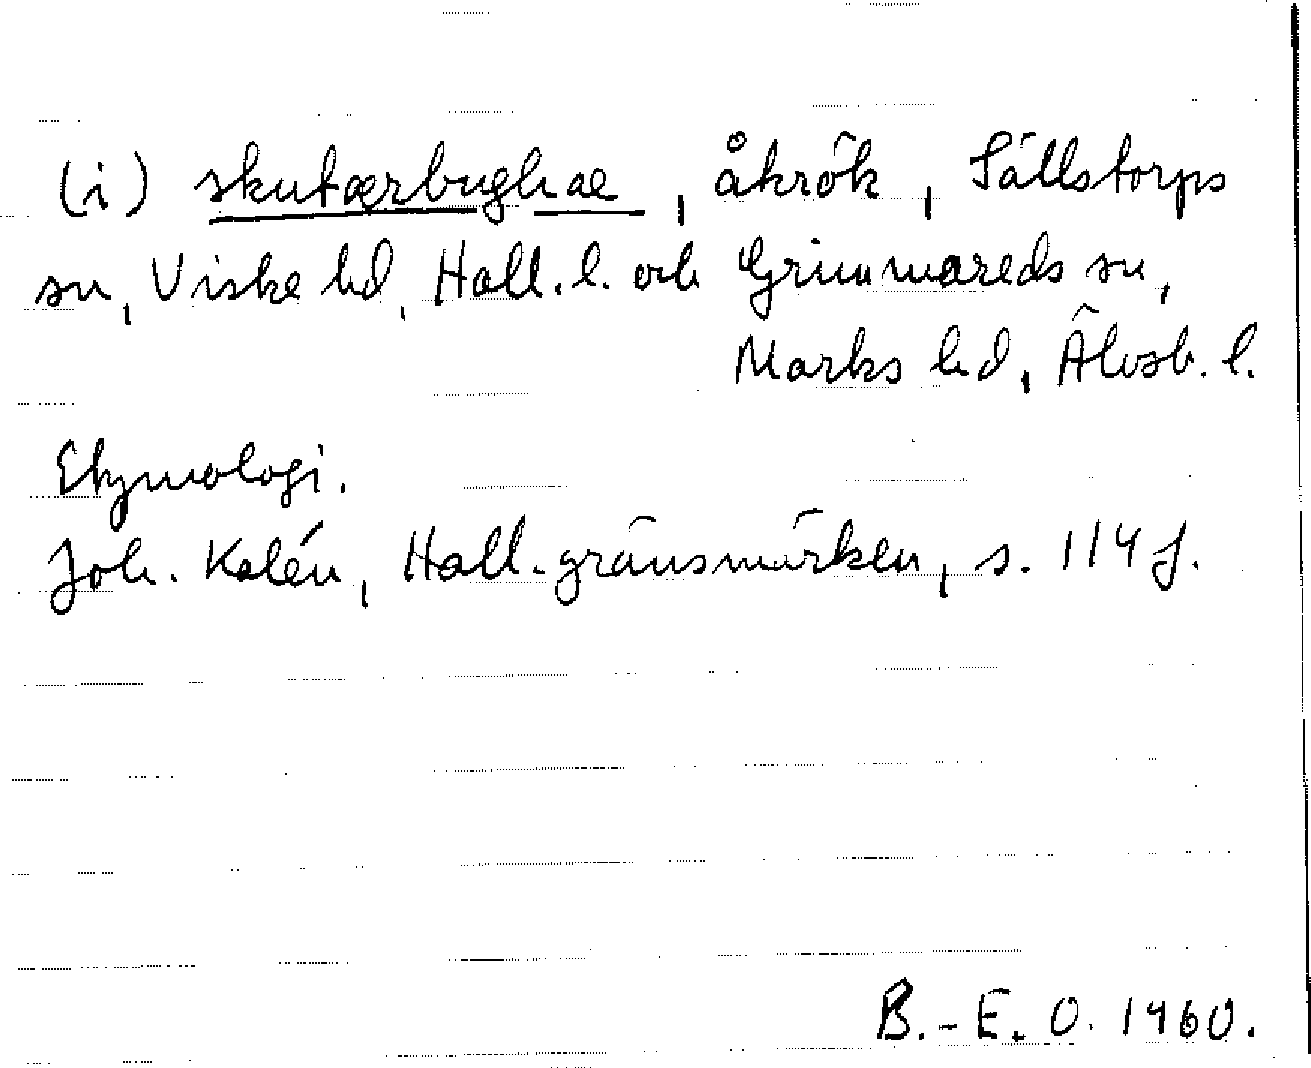 (i) skutærbughae, åkrök, Sällstorps
sn, Viske hd, Hall. l. och Grimmareds sn,
Marks hd, Älvsb. l.
Etymologi.
Joh. Kalén, Hall. gränsmärken, s. 114 f.
B.-E. O. 1960.